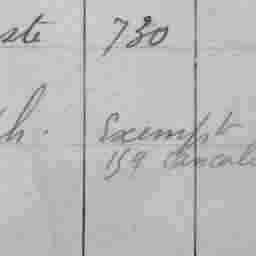 ste 730
h. Exempt
159 Cancale